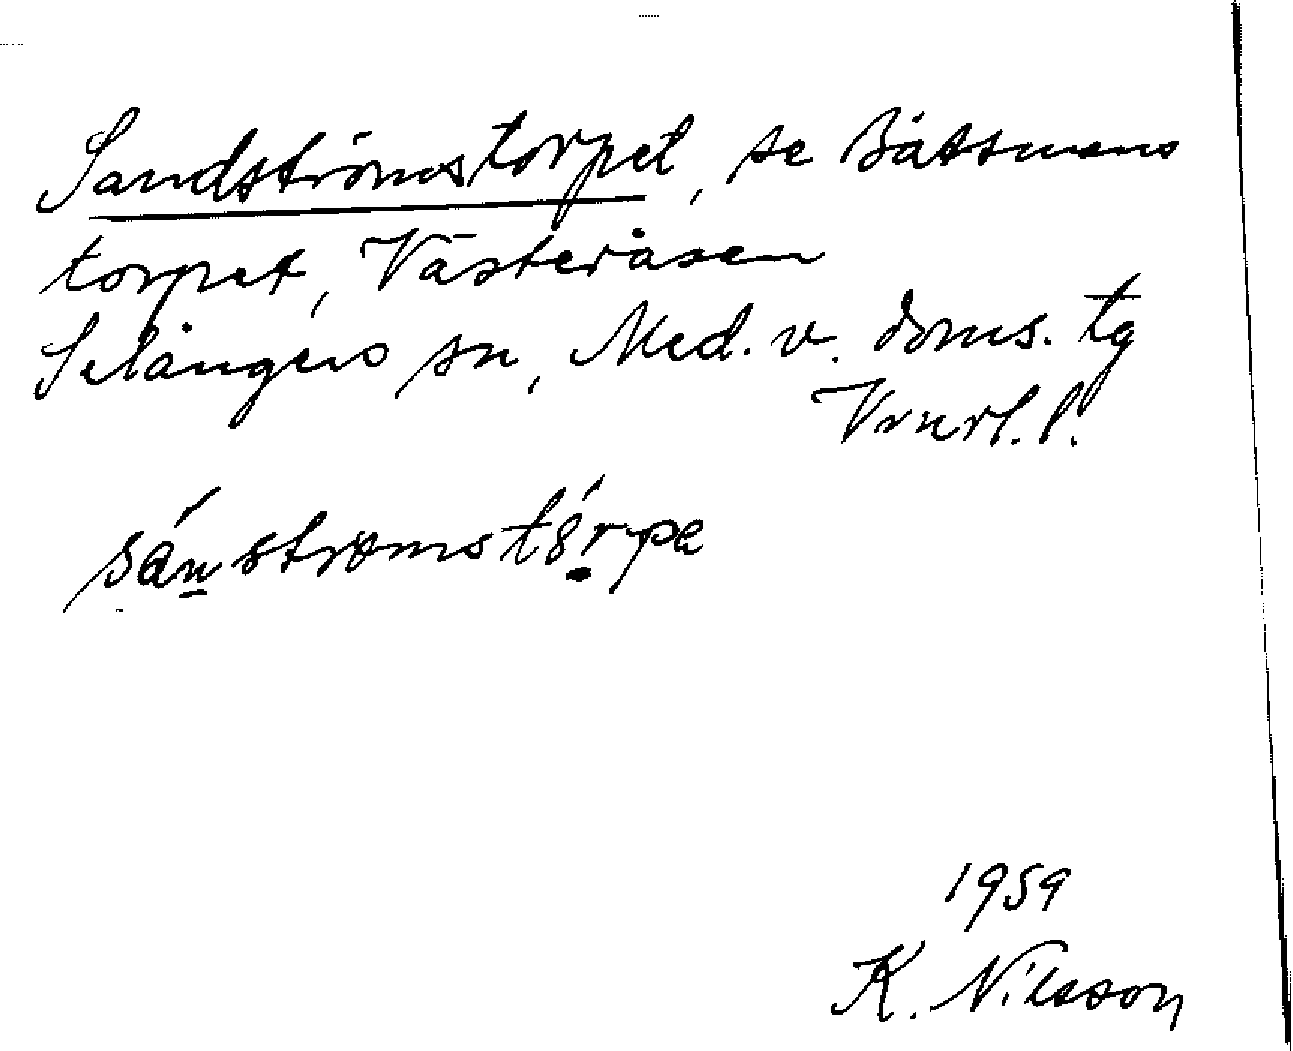 Sandströmstorpet, se Båtsmans
torpet, Västeråsen
Selångers sn, Med. v. doms. tg
Vnrl. l.
sánstrømstórpe
1959
K. Nilsson